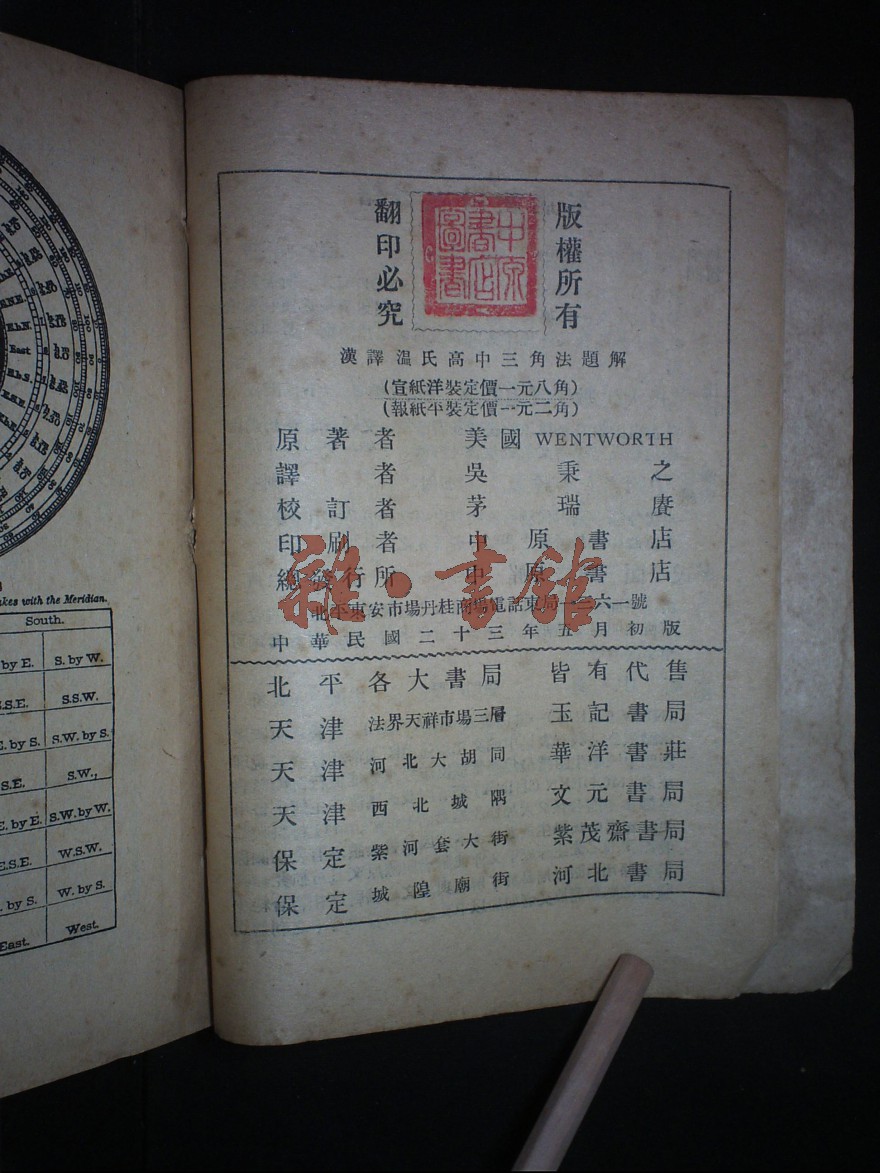 kes with the Meridian.
South.
by E. S. by W.
S.E. S.S.W.
by S. S.W. by S.
S.E. S.W.,
by E. S.W. by W.
E.S.E. W.S.W.
by S. W. by S.
East. West.
版權所有
中原書店圖書
翻印必究
漢譯溫氏高中三角法題解
(宣紙洋裝定價一元八角)
(報紙平裝定價一元二角)
原著者 美國 WENTWORTH
譯者 吳秉之
校訂者 茅瑞賡
印刷者 中原書店
總發行所 中原書店
北平東安市場丹桂商場電話東局一三六一號
中華民國二十三年五月初版
北平各大書局 皆有代售
天津 法界天祥市場三層 玉記書局
天津 河北大胡同 華洋書莊
天津 西北城隅 文元書局
保定 紫河套大街 紫茂齋書局
保定 城隍廟街 河北書局
雜·書館